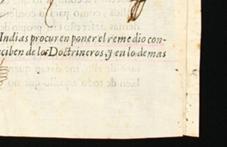 Indias procuren poner el remedio con-
ciben de los Doctrineros, y en lo demas